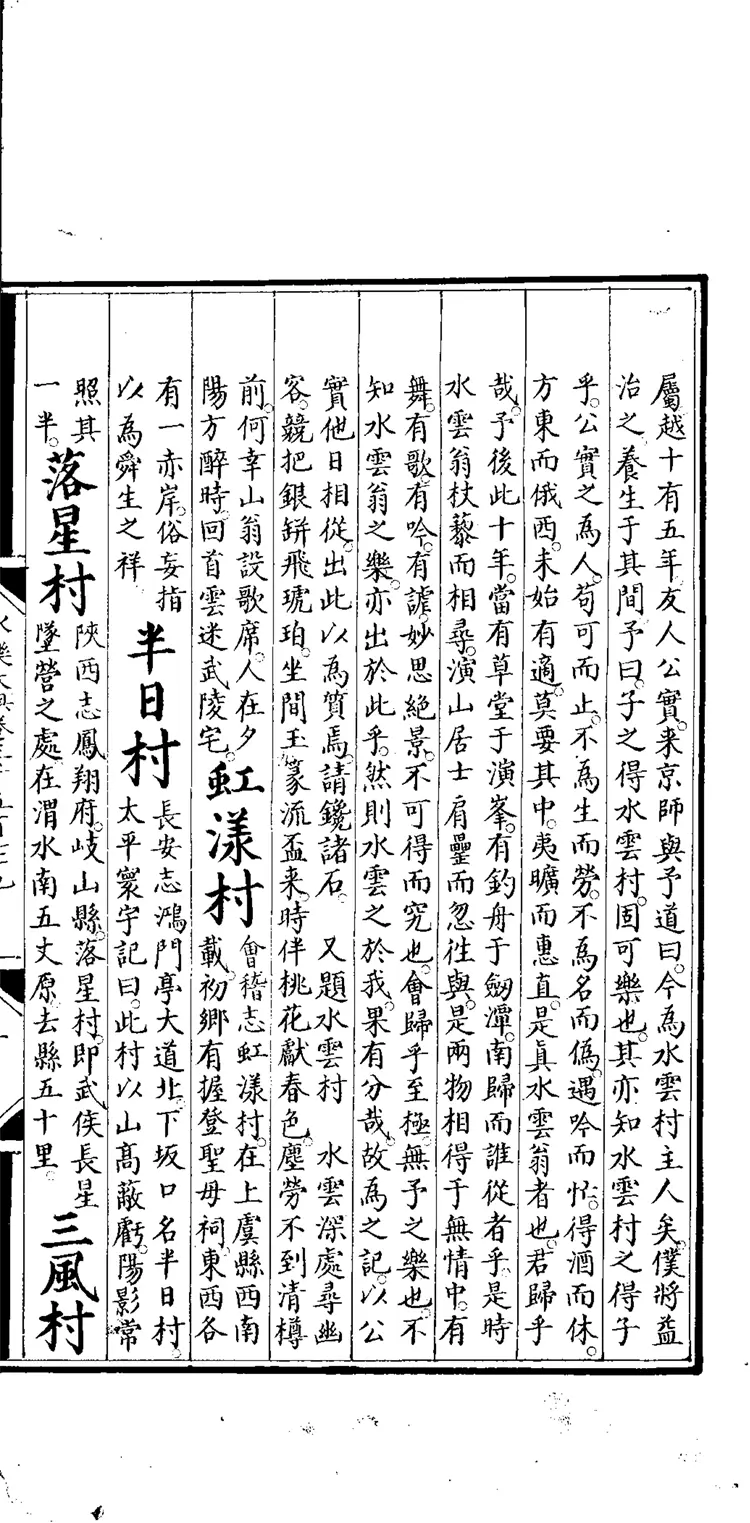 屬越十有五年。友人公實。来京師與予道曰。今為水雲村主人矣。僕將益
治之。養生于其間。予曰。子之得水雲村。固可樂也。其亦知水雲村之得子
乎。公實之為人。苟可而止。不為生而勞。不為名而僞。遇吟而忙。得酒而休。
方東而俄西。未始有適。莫要其中。夷曠而惠直。是眞水雲翁者也。君歸乎
哉。予後此十年。當有草堂于演峯。有釣舟于劒潭。南歸而誰從者乎。是時
水雲翁杖藜而相尋。演山居士肩罍而忽徃與。是兩物相得于無情中。有
舞。有歌。有吟。有謔。妙思絶景。不可得而究也。會歸乎至極。無予之樂也。不
知水雲翁之樂。亦出於此乎。然則水雲之於我。果有分哉。故為之記。以公
實他日相從。出此以為質焉。請鑱諸石。 又題水雲村 水雲深處尋幽
客。競把銀缾飛琥珀。坐間玉篆流盃来。時伴桃花獻春色。塵勞不到清樽
前。何幸山翁設歌席。人在夕
陽方醉時。回首雲迷武陵宅。
虹漾村
會稽志虹漾村。在上虞縣西南
載。初鄉有握登聖母祠。東西各
有一赤岸。俗妄指
以為舜生之祥
半日村
長安志鴻門亭大道北下坂口名半日村。
太平寰宇記曰。此村以山髙蔽虧。陽影常
照其
一半。
落星村
陜西志鳳翔府。岐山縣。落星村。即武侯長星
墜營之處在渭水南五丈原去縣五十里。
三風村